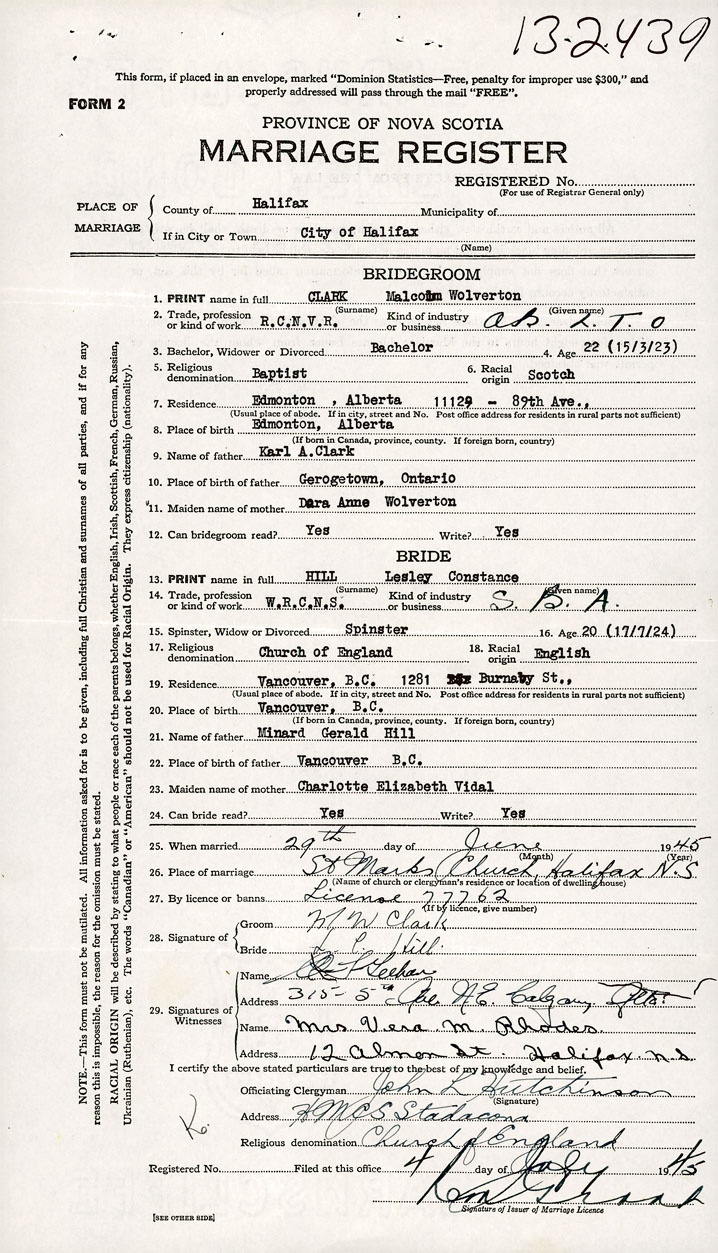 13-2439
This form, if placed in an envelope, marked "Dominion Statistics—Free, penalty for improper use $300," and
properly addressed will pass through the mail "FREE".
FORM 2
PROVINCE OF NOVA SCOTIA
MARRIAGE REGISTER
REGISTERED No.
(For use of Registrar General only)
PLACE OF MARRIAGE
County of Halifax Municipality of
If in City or Town City of Halifax
(Name)
BRIDEGROOM
1. PRINT name in full CLARK Malcolm Wolverton
(Surname) (Given name)
2. Trade, profession or kind of work R.C.N.V.R. Kind of industry or business AB. L.T.O
3. Bachelor, Widower or Divorced Bachelor 4. Age 22 (15/3/23)
5. Religious denomination Baptist 6. Racial origin Scotch
7. Residence Edmonton , Alberta 11129 - 89th Ave.,
(Usual place of abode. If in city, street and No. Post office address for residents in rural parts not sufficient)
8. Place of birth Edmonton, Alberta
(If born in Canada, province, county. If foreign born, country)
9. Name of father Karl A.Clark
10. Place of birth of father Gerogetown, Ontario
11. Maiden name of mother Dara Anne Wolverton
12. Can bridegroom read? Yes Write? Yes
BRIDE
13. PRINT name in full HILL Lesley Constance
(Surname) (Given name)
14. Trade, profession or kind of work W.R.C.N.S. Kind of industry or business S. B. A.
15. Spinster, Widow or Divorced Spinster 16. Age 20 (17/7/24)
17. Religious denomination Church of England 18. Racial origin English
19. Residence Vancouver, B.C. 1281 Burnaby St.,
(Usual place of abode. If in city, street and No. Post office address for residents in rural parts not sufficient)
20. Place of birth Vancouver, B.C.
(If born in Canada, province, county. If foreign born, country)
21. Name of father Minard Gerald Hill
22. Place of birth of father Vancouver B.C.
23. Maiden name of mother Charlotte Elizabeth Vidal
24. Can bride read? Yes Write? Yes
25. When married 29th day of June 1945
(Month) (Year)
26. Place of marriage St Marks Church, Halifax N.S
(Name of church or clergyman's residence or location of dwelling house)
27. By licence or banns License 77762
(If by licence, give number)
28. Signature of
Groom M W Clark
Bride L C Hill
29. Signatures of Witnesses
Name
Address 315-5th Ave. N.E. Calgary, Alta.
Name Mrs Vera M. Rhodes.
Address 12 Almon St. Halifax. N.S.
I certify the above stated particulars are true to the best of my knowledge and belief.
Officiating Clergyman John L Hutchinson
(Signature)
Address HMCS Stadacona
Religious denomination Church of England
Registered No. Filed at this office 4 day of July 1945
Signature of Issuer of Marriage Licence
[SEE OTHER SIDE]
NOTE.—This form must not be mutilated. All information asked for is to be given, including full Christian and surnames of all parties, and if for any
reason this is impossible, the reason for the omission must be stated.
RACIAL ORIGIN will be described by stating to what people or race each of the parents belongs, whether English, Irish, Scottish, French, German, Russian,
Ukrainian (Ruthenian), etc. The words "Canadian" or "American" should not be used for Racial Origin. They express citizenship (nationality).